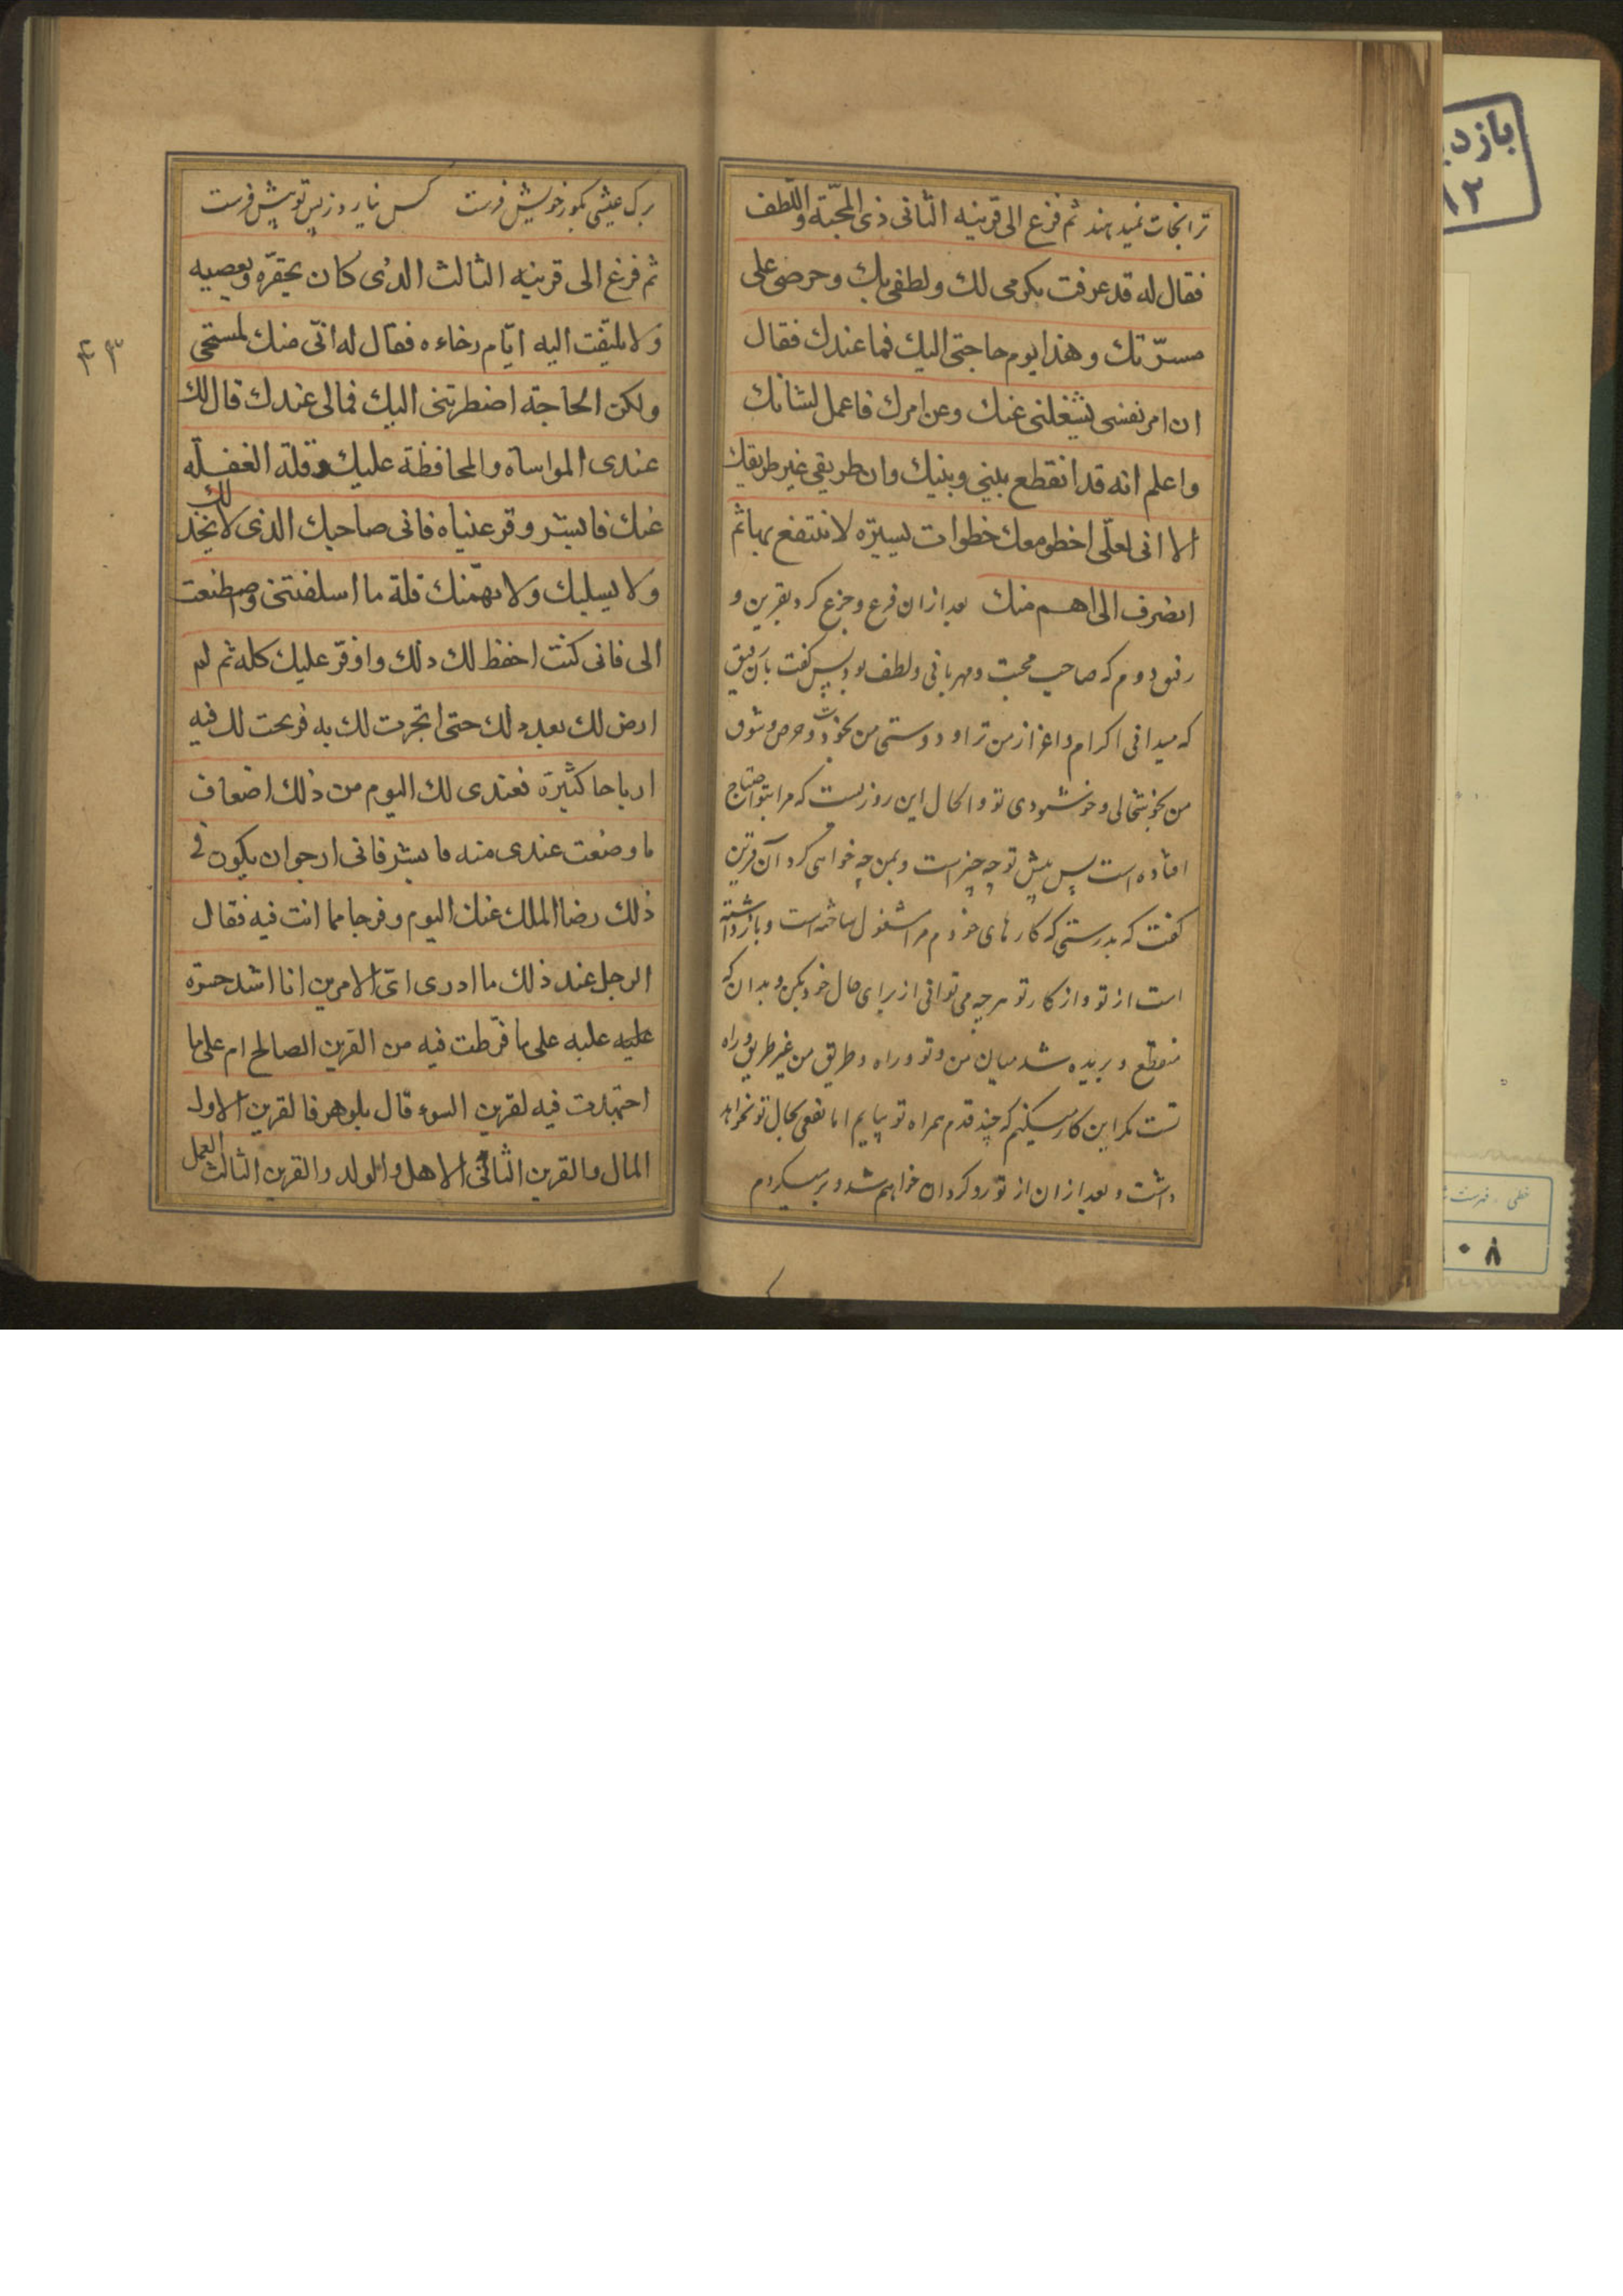 ترا نجات نمیدهند ثم فزع الی قرینه الثانی ذی المحبّة واللّطف
فقال له قد عرفت بکرمی لك ولطفی بك وحرصی علی
مسرّتك وهذا یوم حاجتی الیك فما عندك فقال
ان امر نفسی یشغلنی عنك وعن امرك فاعمل لشانك
واعلم انه قد انقطع بینی وبینك وان طریقی غیر طریقك
الا انی لعلّی اخطو معك خطوات یسیره لا تنتفع بها ثم
انصرف الی اهم منك بعد ازان فزع و جزع کرد بقرین و
رفیق دوم که صاحب محبت و مهربانی و لطف بود پس کفت بان رفیق
که میدانی اکرام و اعزاز من ترا و دوستی من بخودت و حرص و شوق
من بخوشحالی و خوشنودی تو والحال این روزیست که مرا بتو احتیاج
افتاده است پس پیش تو چه چیز است و بمن چه خواهی کرد آن قرین
کفت که بدرستی که کارهای خودم مرا مشغول ساخته است و بازداشته
است از تو و از کار تو هر چه می توانی از برای حال خود بکن و بدان که
منقطع و بریده شد میان من و تو و راه و طریق من غیر طریق و راه
تست مکر این کار میکنم که چند قدم همراه تو بیایم اما نفعی بحال تو نخواهد
داشت و بعد ازان از تو رو کردان خواهم شد و بر میکردم
برك عیشی بکور خویش فرست کس نیارد ز پس تو پیش فرست
ثم فزع الی قرینه الثالث الذی کان یحقره ویعصیه
ولا یلتفت الیه ایّام رخاءه فقال له انّی منك لمستحی
ولکن الحاجة اضطرتنی الیك فمالی عندك قال لك
عندی المواساه والمحافظة علیك وقلة الغفله
عنك فابشر وقر عیناه فانی صاحبك الذی لا یخذلك
ولا یسلبك ولا یهمّنك قلة ما اسلفتنی وصطنعت
الی فانی کنت احفظ لك ذلك واوفّر علیك کله ثم لم
ارض لك بعد ذلك حتی اتجرت لك به فربحت لك فیه
ارباحا کثیرة فعندی لك الیوم من ذلك اضعاف
ما وضعت عندی منه فابشر فانی ارجو ان یکون فی
ذلك رضا الملك عنك الیوم وفرجا مما انت فیه فقال
الرجل عند ذلك ما ادری ایّ الامرین انا اشد حسره
علیه علیه علی ما فرّطت فیه من القرین الصالح ام علی ما
اجتهدت فیه لقرین السوء قال بلوهر فالقرین الاول
المال والقرین الثانی الاهل والولد والقرین الثالث العمل
بازد
خطی - فهرست
۰۸